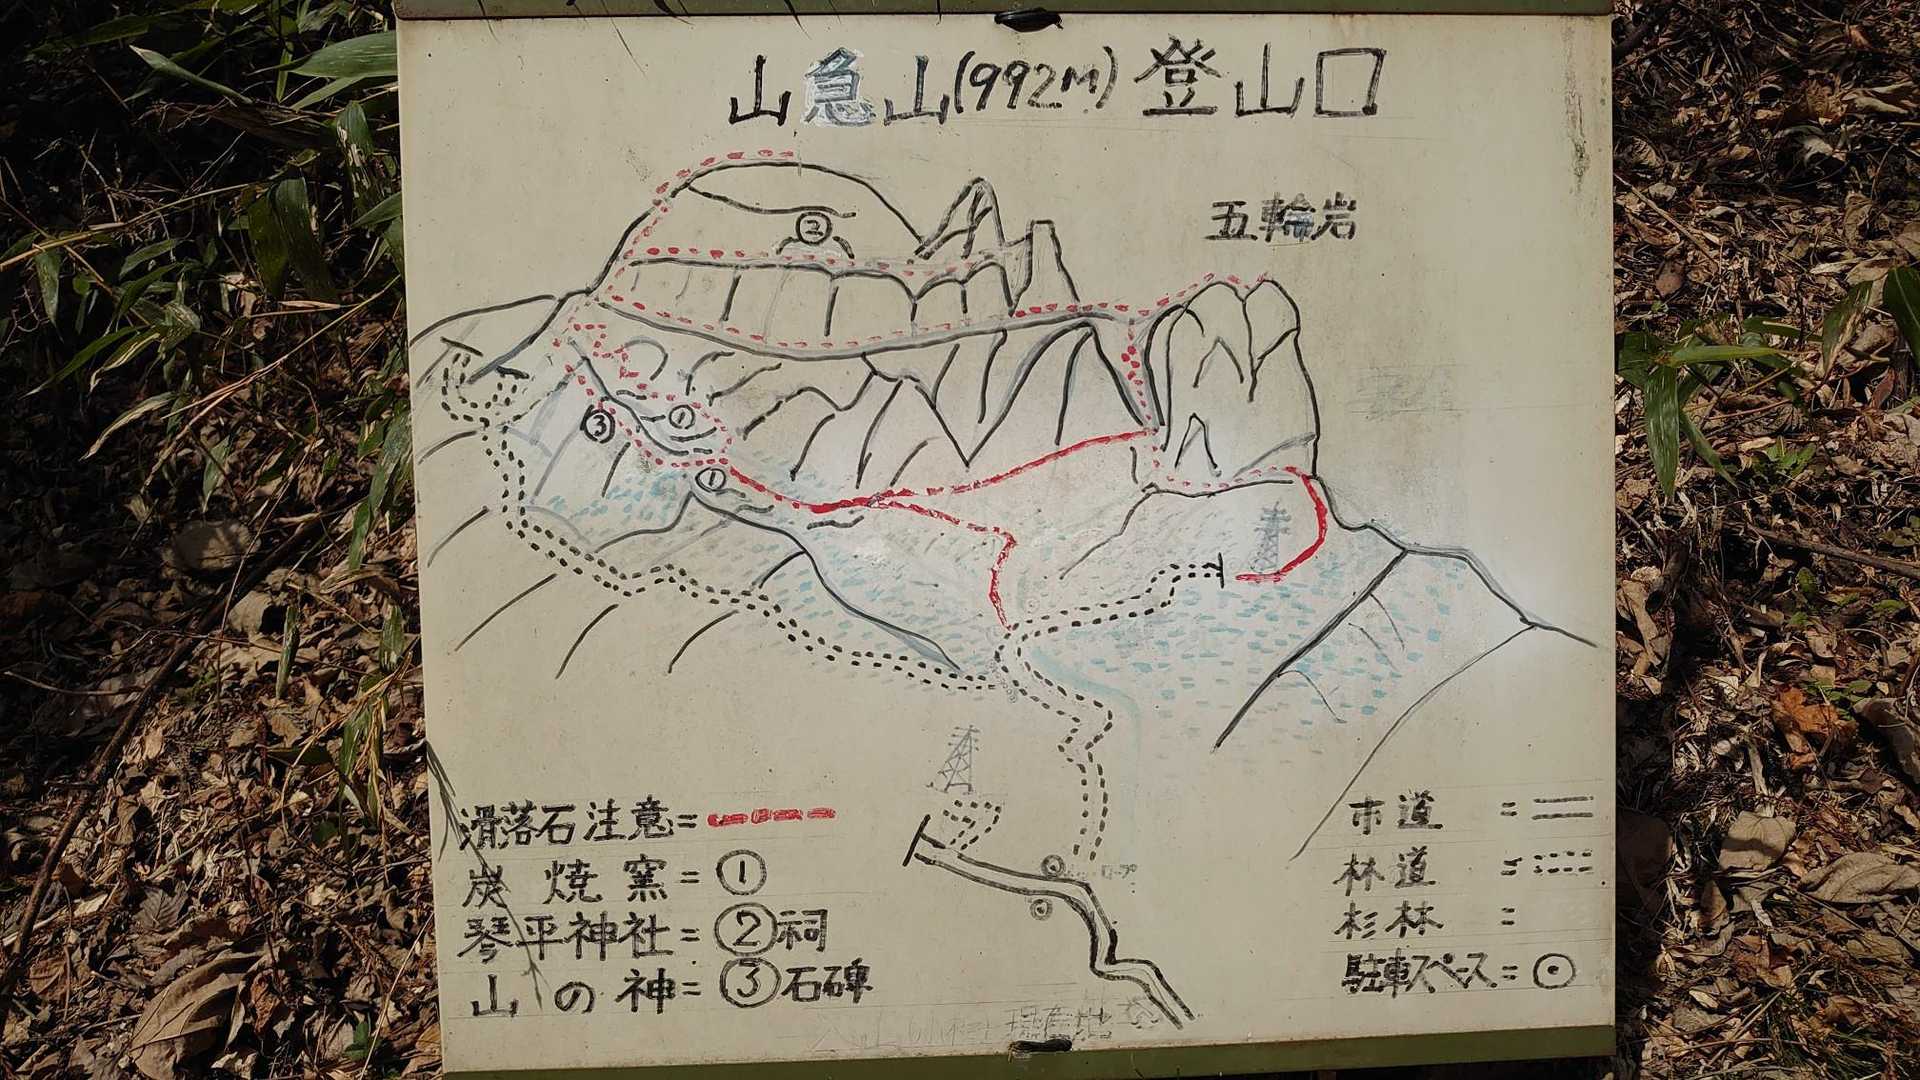 山急山(992M)登山口
五輪岩
②
③
①
①
滑落石注意=
炭焼窯=①
琴平神社=②祠
山の神=③石碑
市道=
林道=
杉林=
駐車スペース=